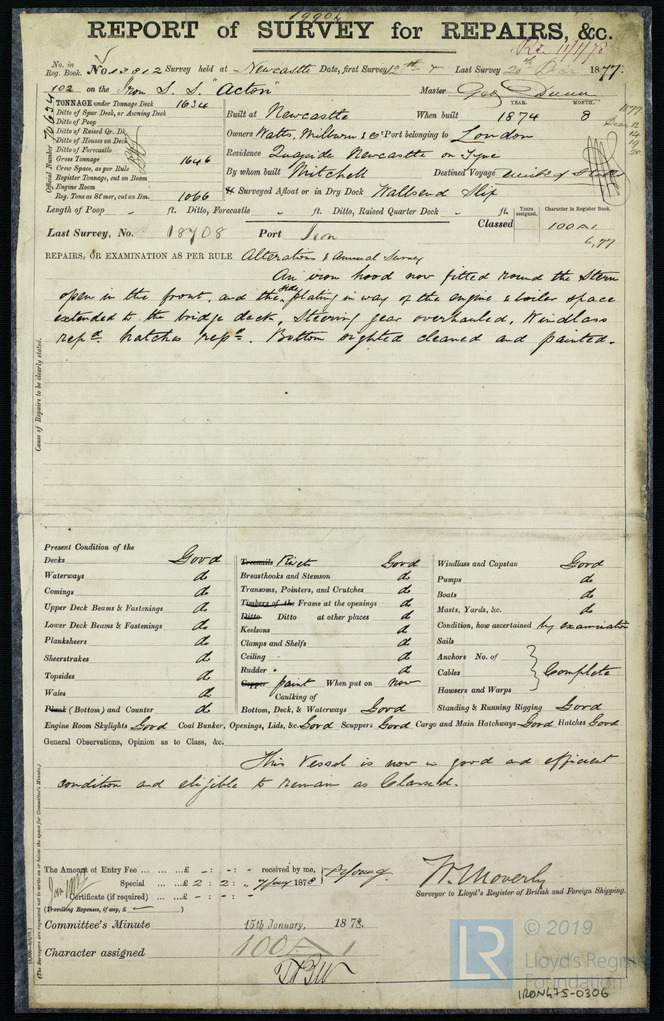 19904
REPORT of SURVEY for REPAIRS, &c.
Rec 11/1/78
No. in Reg. Book. No. 13812 Survey held at Newcastle Date, first Survey 12th & Last Survey 20th Dec 1877.
102 on the Iron S. S. "Acton" Master Geo Dunn
TONNAGE under Tonnage Deck 1634
Ditto of Spar Deck, or Awning Deck
Ditto of Poop
Ditto of Raised Qr. Dk.
Ditto of Houses on Deck
Ditto of Forecastle
Gross Tonnage 1646
Crew Space, as per Rule
Register Tonnage, cut on Beam
Engine Room
Reg. Tons as St'mer, cut on Bm. 1066
Official Number 70634
YEAR. MONTH.
Built at Newcastle When built 1874 8
Owners Watts, Milburn & Co Port belonging to London
Residence Quayside Newcastle on Tyne
By whom built Mitchell Destined Voyage
If Surveyed Afloat or in Dry Dock Wallsend Slip
1877
Decr 12
14
19
20
Length of Poop " ft. Ditto, Forecastle " ft. Ditto, Raised Quarter Deck " ft.
Years assigned. Character in Register Book.
Last Survey, No. 18708 Port Iron Classed 100 A1
6,77
REPAIRS, OR EXAMINATION AS PER RULE Alterations & Annual Survey
An iron hood now fitted round the Stern
open in the front, and the side plating in way of the engine & boiler space
extended to the bridge deck, Steering gear overhauled, Windlass
repd. hatches repd. Bottom sighted cleaned and painted.
Cause of Repairs to be clearly stated.
Present Condition of the
Decks Good
Waterways do
Comings do
Upper Deck Beams & Fastenings do
Lower Deck Beams & Fastenings do
Planksheers do
Sheerstrakes do
Topsides do
Wales do
Plank (Bottom) and Counter do
Treenails Rivets Good
Breasthooks and Stemson do
Transoms, Pointers, and Crutches do
Timbers of the Frame at the openings do
Ditto Ditto at other places do
Keelsons do
Clamps and Shelfs do
Ceiling do
Rudder do
Copper paint When put on now
Caulking of
Bottom, Deck, & Waterways Good
Windlass and Capstan Good
Pumps do
Boats do
Masts, Yards, &c. do
Condition, how ascertained by examination
Sails
Anchors No. of
Cables Complete
Hawsers and Warps
Standing & Running Rigging Good
Engine Room Skylights Good Coal Bunker, Openings, Lids, &c. Good Scuppers Good Cargo and Main Hatchways Good Hatches Good
General Observations, Opinion as to Class, &c.
This Vessel is now in good and efficient
condition and eligible to remain as Classed.
(The Surveyors are requested not to write on or below the space for Committee's Minute.)
The Amount of Entry Fee ... ... ... £ - : - : - received by me,
Special ... ... £ 2 : 2 : " 7/Jany 1878
Certificate (if required) ... £ - : - : -
(Travelling Expenses, if any, £ )
W. Moverly
Surveyor to Lloyd's Register of British and Foreign Shipping.
Committee's Minute 15th January, 1878.
Character assigned 100 A 1
LR
© 2019
Lloyd's Register
Foundation
IRON475-0306